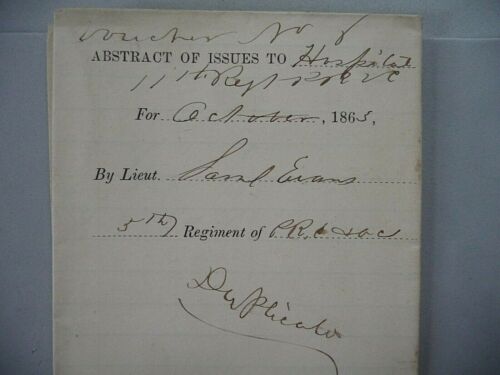 Voucher No 8
ABSTRACT OF ISSUES TO Hospital
11th Regt
For October, 1865,
By Lieut. Saml Evans
5th Regiment of
Duplicate